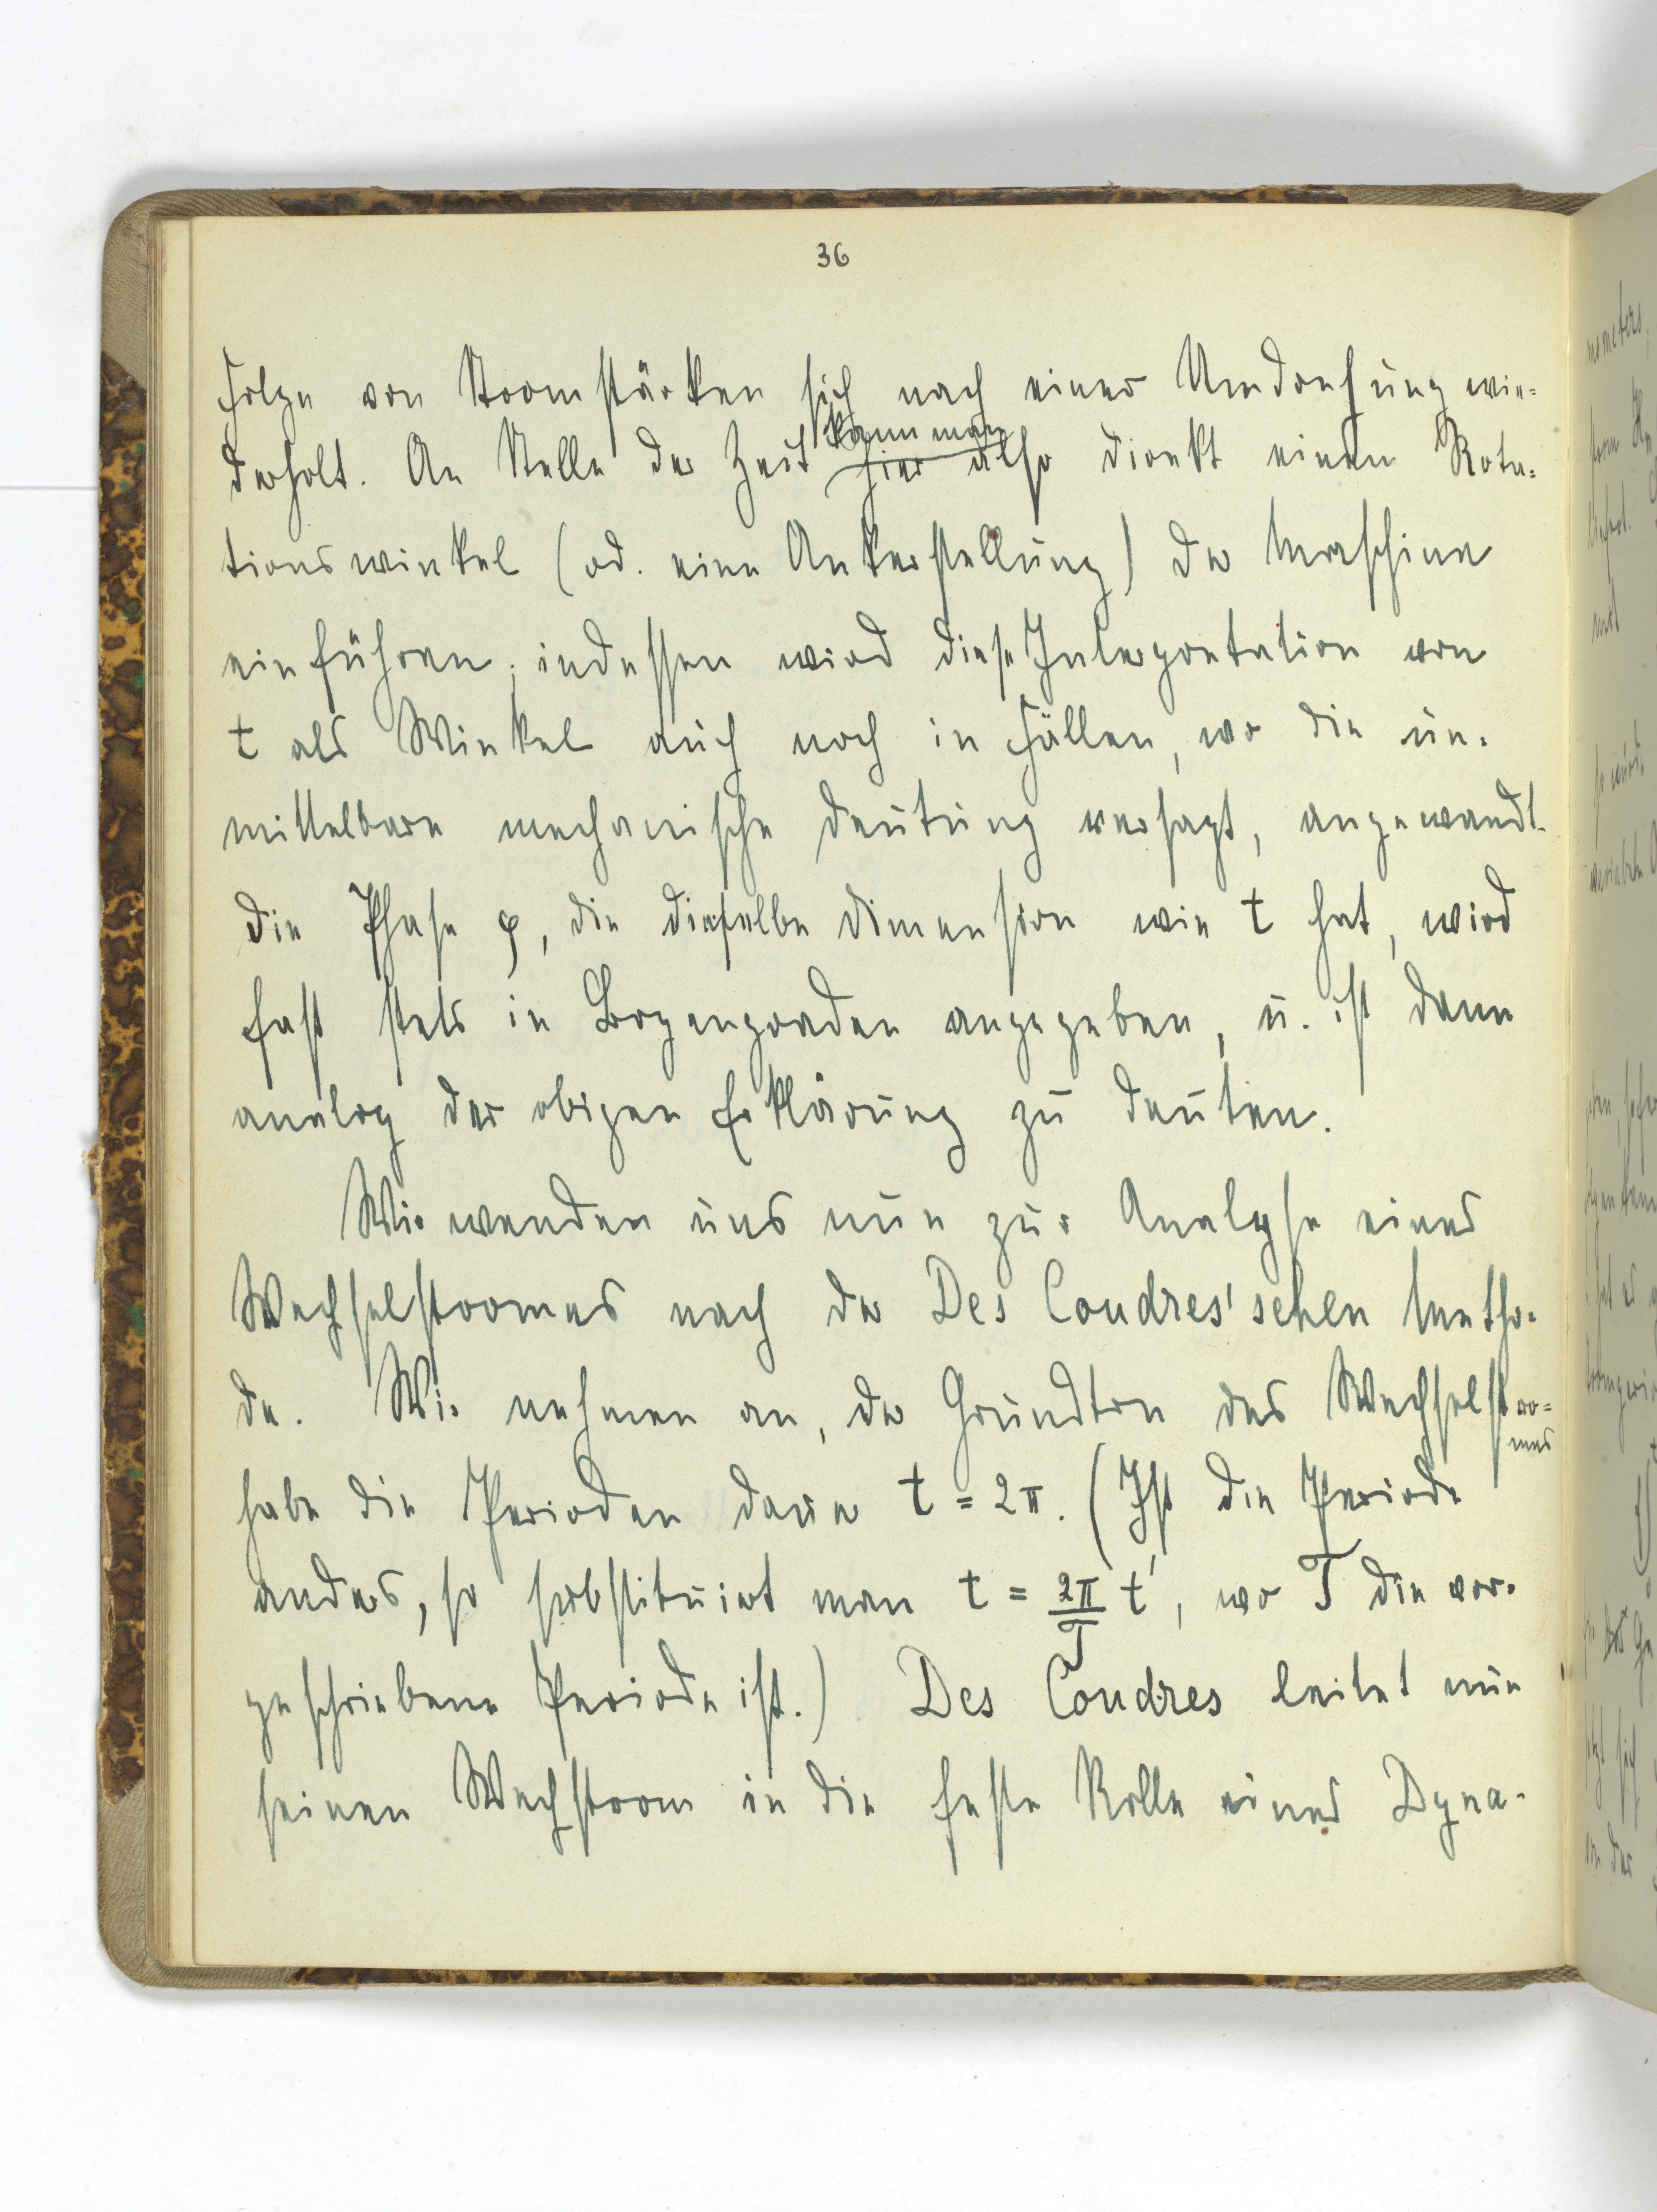 36
Folge von Stromstärken sich nach einer Umdrehung wie-
derholt. An Stelle der Zeit kann man hier also direkt einen Rota-
tionswinkel (od. eine Ankerstellung) der Maschine
einführen; indessen wird diese Interpretation von
t als Winkel auch noch in Fällen, wo die un-
mittelbare mechanische Deutung versagt, angewandt.
die Phase φ, die dieselbe Dimension wie t hat, wird
fast stets in Bogengraden angegeben, u. ist dann
analog der obigen Erklärung zu deuten.
Wir wenden uns nun zur Analyse eines
Wechselstromes nach der Des Coudres'schen Metho-
de. Wir nehmen an, der Grundton des Wechselstro-
mes
habe die Perioden dauer t = 2π. (Ist die Periode
anders, so substituiert man t = 2π/T t', wo T die vor-
geschriebene Periode ist.) Des Coudres leitet nun
seinen Wechstrom in die feste Rolle eines Dyna-